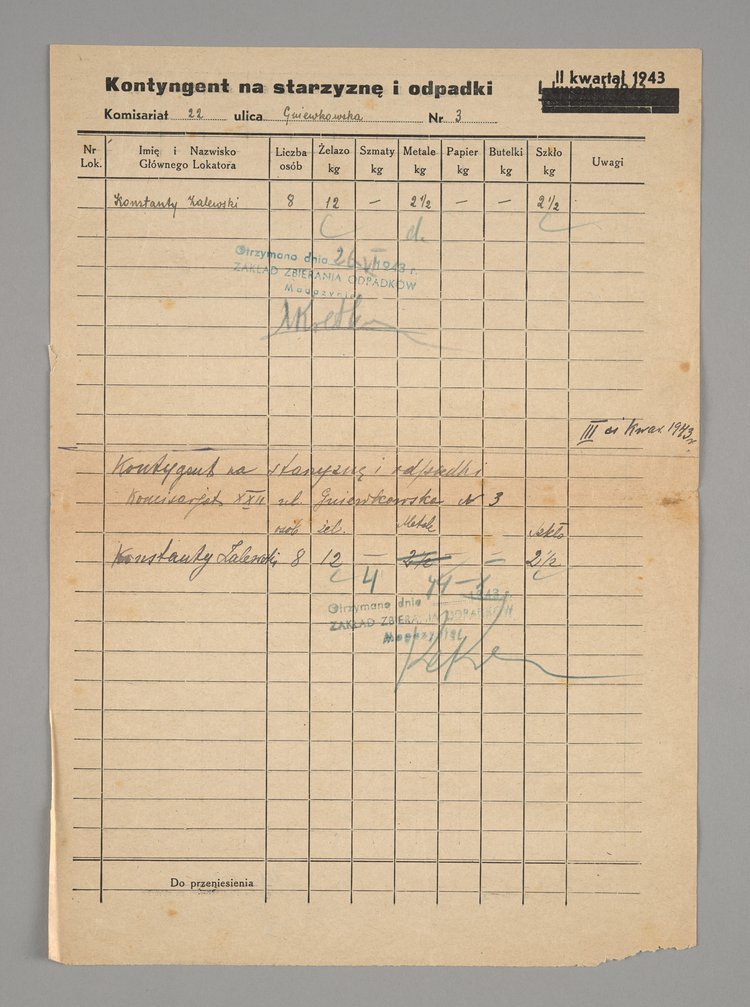 II kwartał 1943
Kontyngent na starzyznę i odpadki
Komisariat 22 ulica Gniewkowska Nr 3
Nr Lok. Imię i Nazwisko Głównego Lokatora Liczba osób Żelazo kg Szmaty kg Metale kg Papier kg Butelki kg Szkło kg Uwagi
Konstanty Zalewski 8 12 — 2½ — — 2½
Otrzymano dnia 26 1943 r.
ZAKŁAD ZBIERANIA ODPADKÓW
Magazynier
III ci Kwar. 1943 r.
Kontygent na starzyznę i odpadki
Komisarjat XXII ul. Gniewkowska N 3
osób żel. Metale szkło
Konstanty Zalewski 8 12 — 2½ — = 2½
4
Otrzymano dnia 1943 r.
ZAKŁAD ZBIERANIA ODPADKÓW
Do przeniesienia